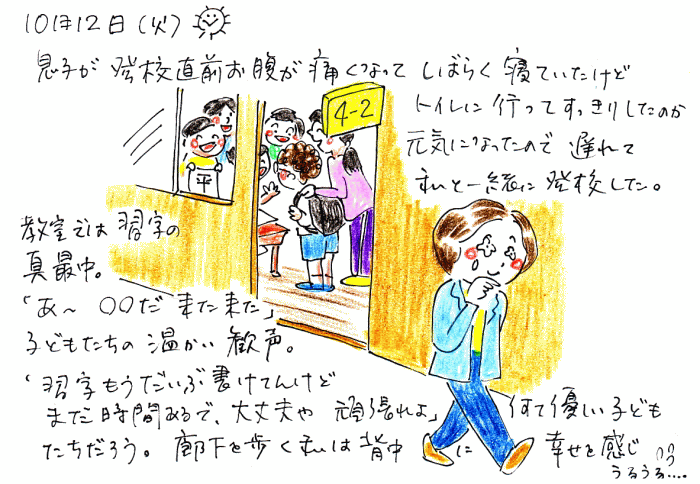 10月12日(火)
息子が 登校直前お腹が 痛くなって しばらく 寝ていたけど
トイレに 行ってすっきりしたのか
元気になったので 遅れて
私と一緒に 登校した。
4-2
平
教室では 習字の
真最中。
「あ〜 〇〇だ 来た来た」
子どもたちの 温かい 歓声。
「習字もうだいぶ書けてんけど
まだ時間あるで、大丈夫や 頑張れよ」 何て優しい子ども
たちだろう。 廊下を歩く私は 背中 に 幸せを感じ
うるうる....